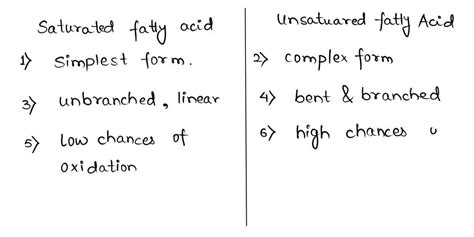 Saturated fatty acid
1) Simplest form.
3) unbranched, linear
5) Low chances of
oxidation
Unsatuared fatty Acid
2) complex form
4) bent & branched
6) high chances